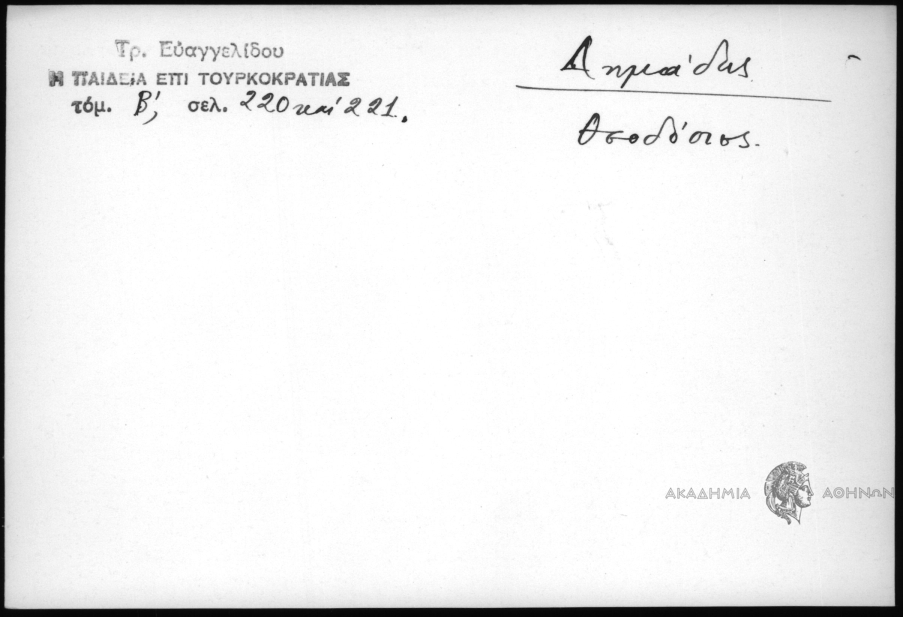 Τρ. Εὐαγγελίδου
Η ΠΑΙΔΕΙΑ ΕΠΙ ΤΟΥΡΚΟΚΡΑΤΙΑΣ
τόμ. Β', σελ. 220 καί 221.
Δημάδης
Θεοδόσιος.
ΑΚΑΔΗΜΙΑ ΑΘΗΝΩΝ